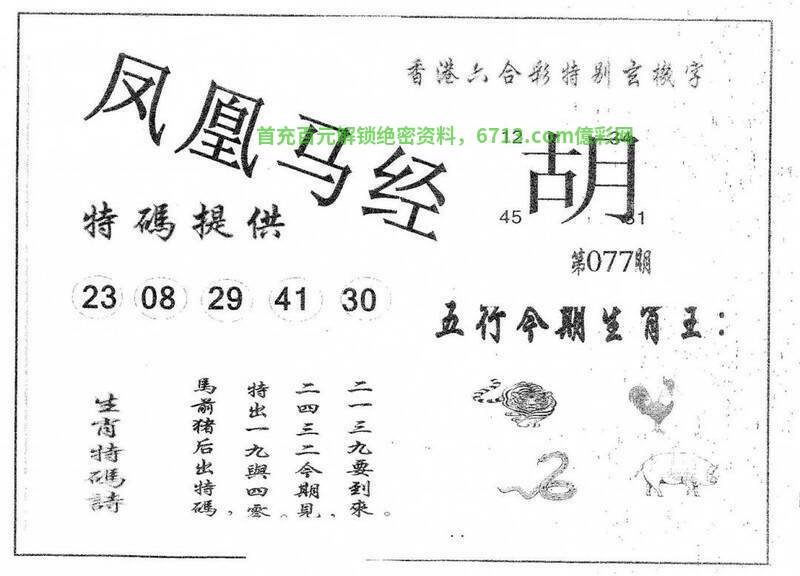 香港六合彩特别玄機字
凤凰马经
首充百元解锁绝密资料，6712.com億彩网
12 34
胡
45 31
特碼提供
第077期
23 08 29 41 30
五行今期生肖王：
二一三九要到來。
二四三二今期見，
特出一九與四零。
馬前猪后出特碼，
生肖特碼詩